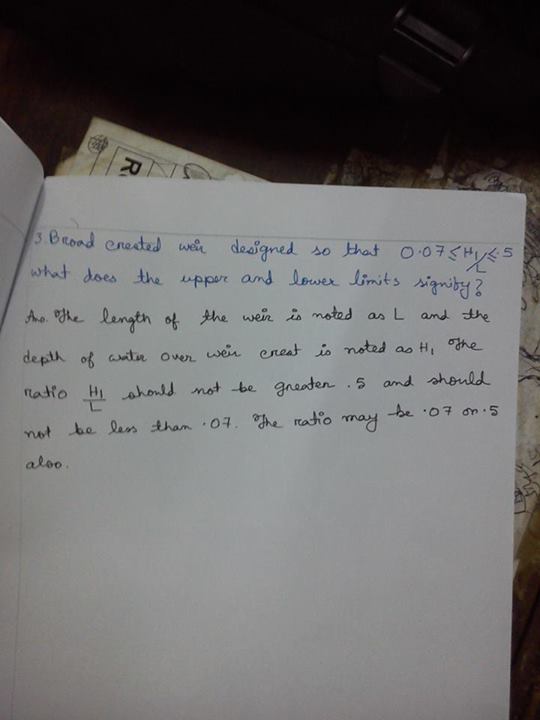 3. Broad crested weir designed so that 0.07 ≤ H1/L ≤ .5
what does the upper and lower limits signify?
Ans. The length of the weir is noted as L and the
depth of water over weir crest is noted as H1 The
ratio H1/L should not be greater .5 and should
not be less than .07. The ratio may be .07 or .5
also.